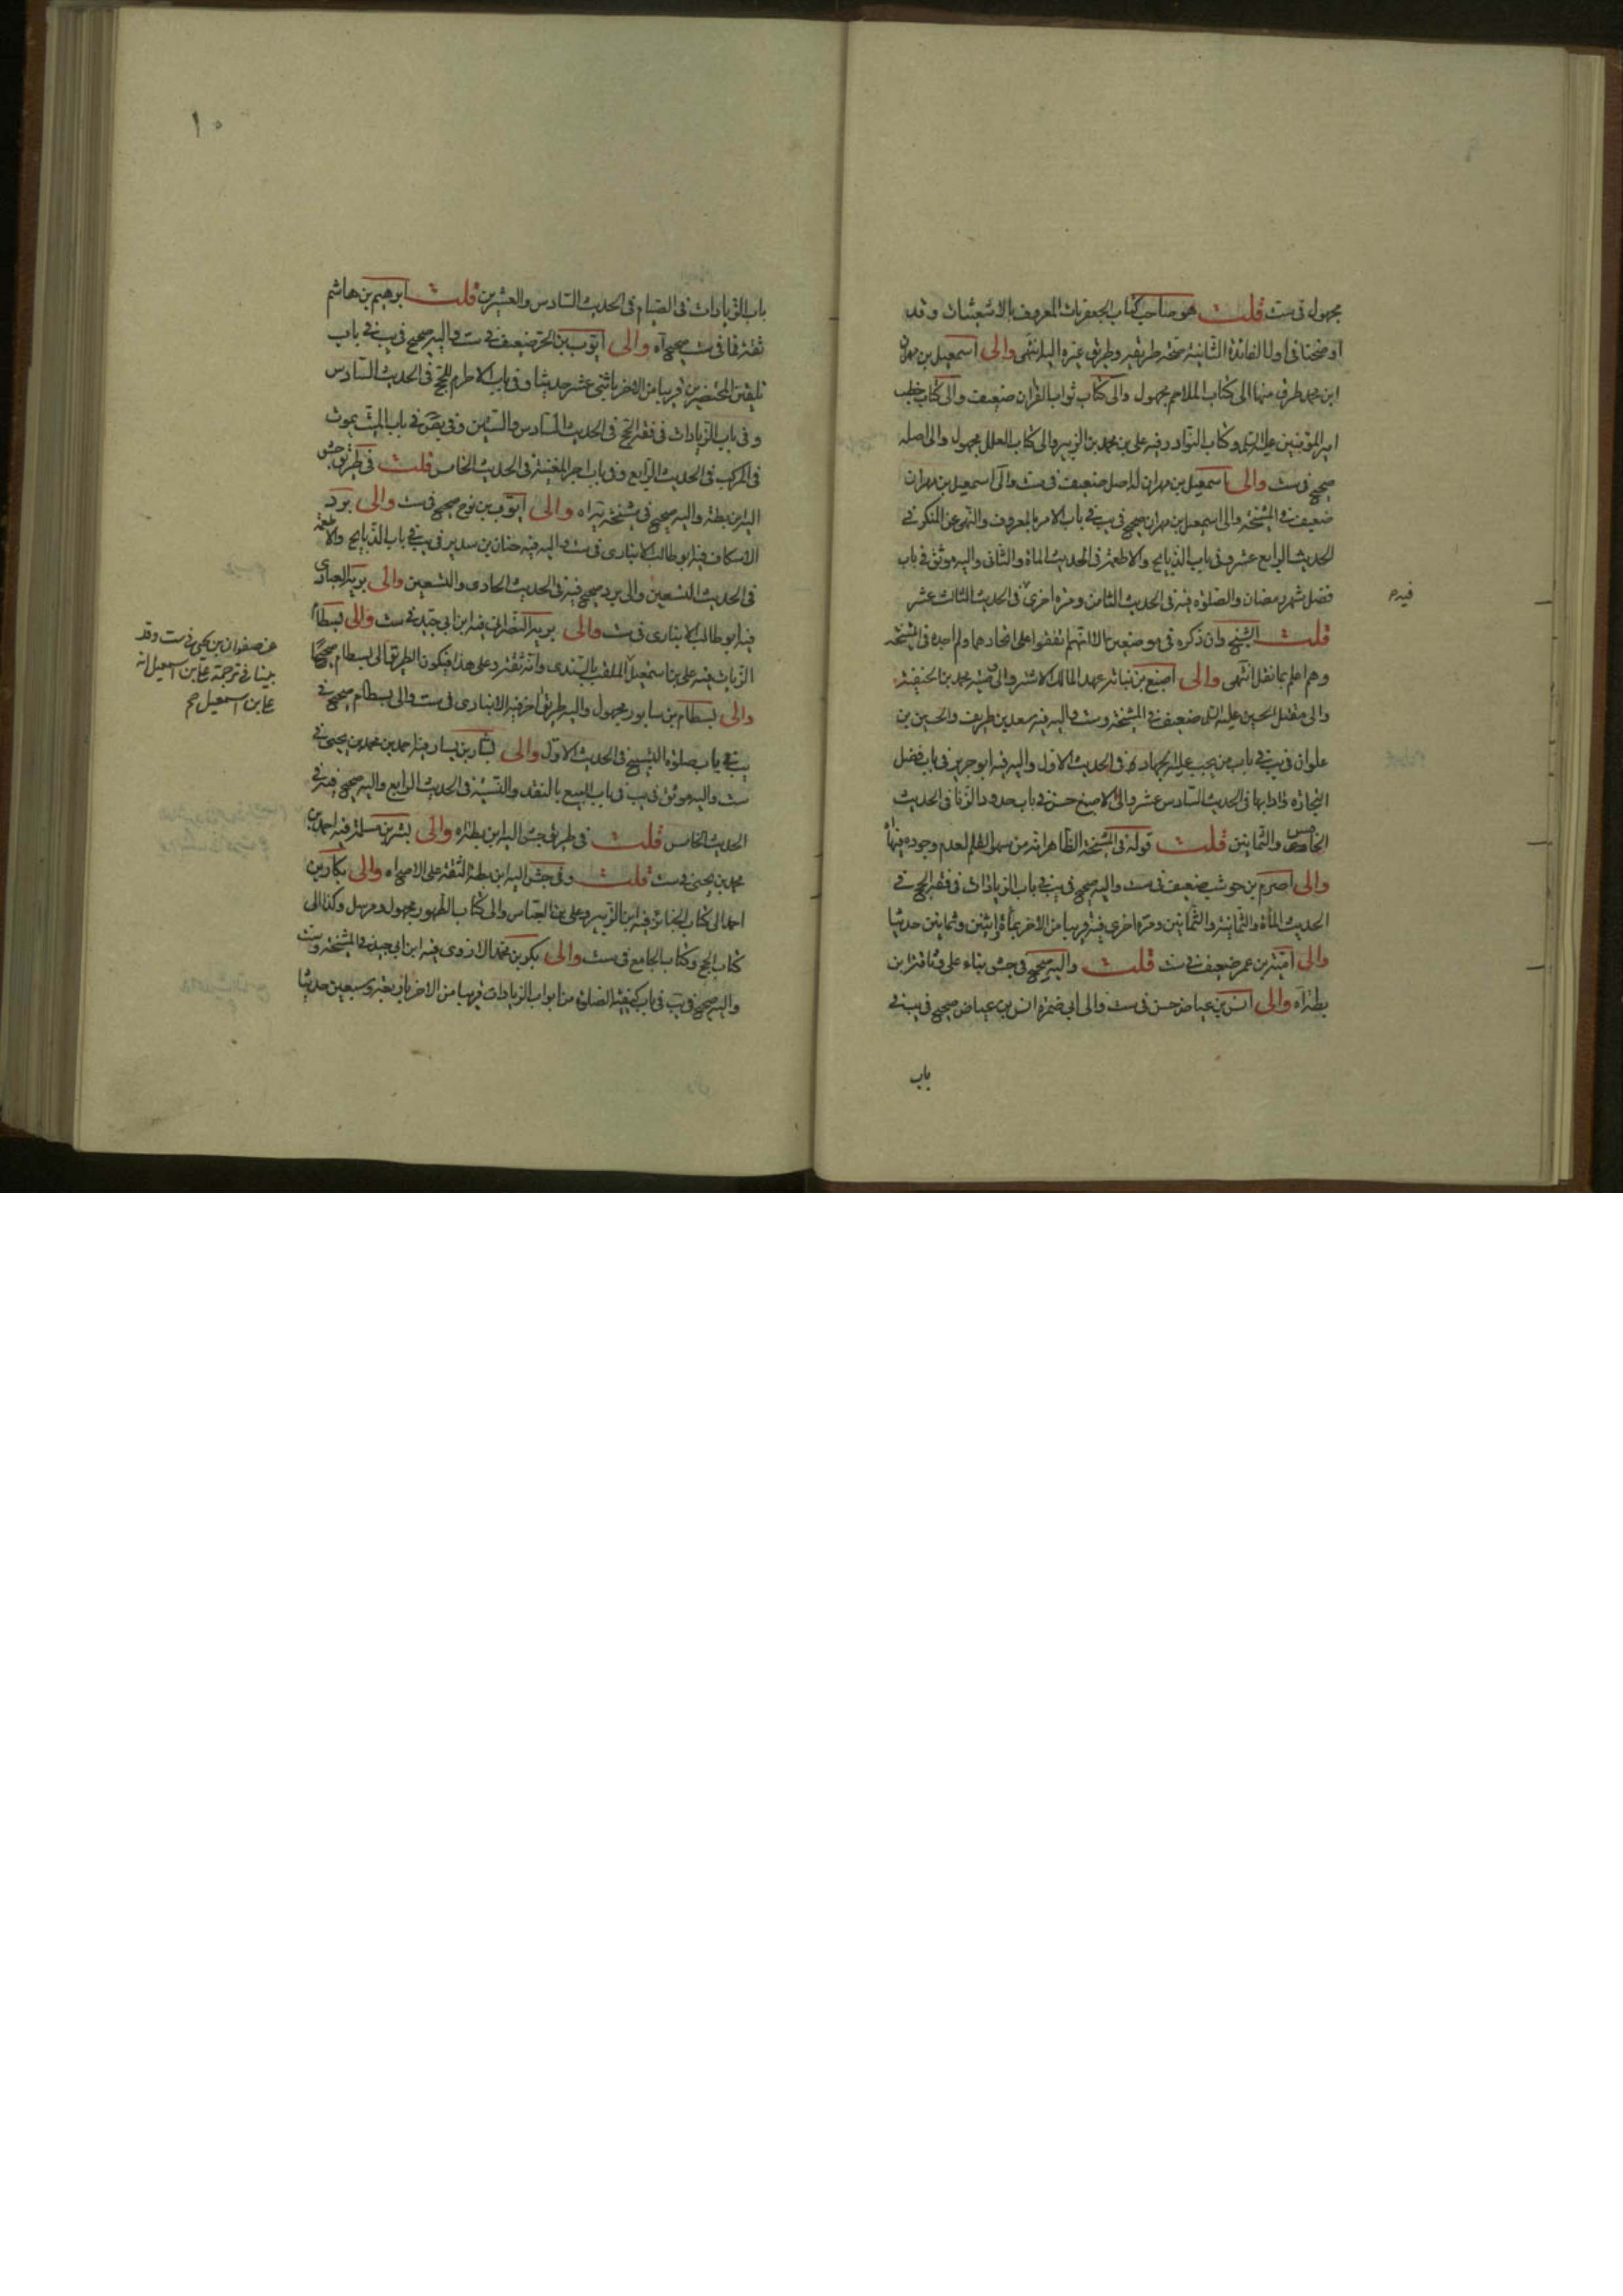 مجهول فى ست قلت هو صاحب كتاب الجعفريات المعروف بالاشعثيات وقد
اوضحنا فى اوايل الفائدة الثانية صحة طريقه وطريق غيره اليه انتهى والى اسمعيل بن مهران
ابن محمد طرق منها الى كتاب الملاحم مجهول والى كتاب ثواب القرآن ضعيف والى كتاب خطب
امير المؤمنين عليه السلم وكتاب النوادر فيه على بن محمد بن الزبير والى كتاب العلل مجهول والى اصله
صحيح فى ست والى اسمعيل بن مهران له اصل ضعيف فى ست والى اسمعيل بن مهران
ضعيف فى المشيخة والى اسمعيل بن مهران صحيح فى يب فى باب الامر بالمعروف والنهى عن المنكر فى
الحديث الرابع عشر وفى باب الذبايح والاطعمة فى الحديث الماة والثانى واليه موثق فى باب
فضل شهر رمضان والصلوة فيه فى الحديث الثامن ومرة اخرى فى الحديث الثالث عشر
فيه م
قلت الشيخ وان ذكره فى موضعين الا انهم اتفقوا على اتحادهما ولم اجده فى المشيخة
وهم اعلم بما نقل انتهى والى اصبغ بن نباتة عهد المالك الاشتر والى وصية محمد بن الحنفية
والى مقتل الحسين عليه السلم ضعيف فى المشيخة وست واليه فيه سعد بن طريف والحسين بن
علوان فى يب فى باب من يجب عليه الجهاد فى الحديث الاول واليه فيه ابو جرير فى باب فضل
التجارة وادابها فى الحديث السادس عشر والى الاصبغ حسن فى باب حدود الزنا فى الحديث
الخامس والثمانين قلت قوله فى المشيخة الظاهر انه من سهو القلم لعدم وجوده فيها
والى اصرم بن حوشب ضعيف فى ست واليه صحيح فى يب فى باب الزيادات فى فقه الحج فى
الحديث المأة والثمانية والثمانين ومرة اخرى فيه قريبا من الاخر بمأة واثنين وثمانين حديثا
والى امية بن عمر ضعيف فى ست قلت واليه صحيح فى جش بناء على وثاقة ابن
بطة اه والى انس بن عياض حسن فى ست والى ابى ضمرة انس بن عياض صحيح فى يب فى
باب
١٠
باب الزيادات فى الصيام فى الحديث السادس والعشرين قلت ابرهيم بن هاشم
ثقة فما فى ست صحيح اه والى ايوب بن الحر ضعيف فى ست واليه صحيح فى يب فى باب
تلقين المحتضرين قريبا من الاخر باثنى عشر حديثا وفى باب الاحرام للحج فى الحديث السادس
وفى باب الزيادات فى فقه الحج فى الحديث السادس والستين وفى بص فى باب الميت يموت
فى المركب فى الحديث الرابع وفى باب اجر المغنية فى الحديث الخامس قلت فى طريق جش
اليه ابن بطة واليه صحيح فى مشيخة يه اه والى ايوب بن نوح صحيح فى ست والى برد
الاسكاف فيه ابو طالب الانبارى فى ست واليه فيه حنان بن سدير فى يب فى باب الذبايح والاطعمة
فى الحديث التسعين والى برد صحيح فيه فى الحديث الحادى والتسعين والى بريد العبادى
فيه ابو طالب الانبارى فى ست والى بريد النصرانى فيه ابن ابى جيد فى ست والى بسطام
الزيات فيه على بن اسمعيل الملقب بالسندى وانه ثقة وعلى هذا فيكون الطريق الى بسطام صحيحا
عن صفوان بن يحيى فى ست وقد
بينا فى ترجمة على بن اسمعيل انه
على بن اسمعيل صح
والى بسطام بن سابور مجهول واليه طريق اخر فيه الانبارى فى ست والى بسطام صحيح فى
يب فى باب صلوة التسبيح فى الحديث الاول والى بشار بن يسار فيه احمد بن محمد بن يحيى فى
ست واليه موثق فى يب فى باب البيع بالنقد والنسيئة فى الحديث الرابع واليه صحيح فيه فى
الحديث الخامس قلت فى طريق جش اليه ابن بطة اه والى بشر بن مسلمة فيه احمد بن
محمد بن يحيى فى ست قلت وفى جش اليه ابن بطة الثقة على الاصح اه والى بكار بن
احمد الى كتاب الجنائز فيه ابن الزبير وعلى بن العباس والى كتاب الطهور مجهول ومرسل وكذا الى
كتاب الحج وكتاب الجامع فى ست والى بكر بن محمد الازدى فيه ابن ابى جيد فى المشيخة وست
واليه صحيح فى يب فى باب كيفية الصلوة من ابواب الزيادات قريبا من الاخر باربعة وسبعين حديثا